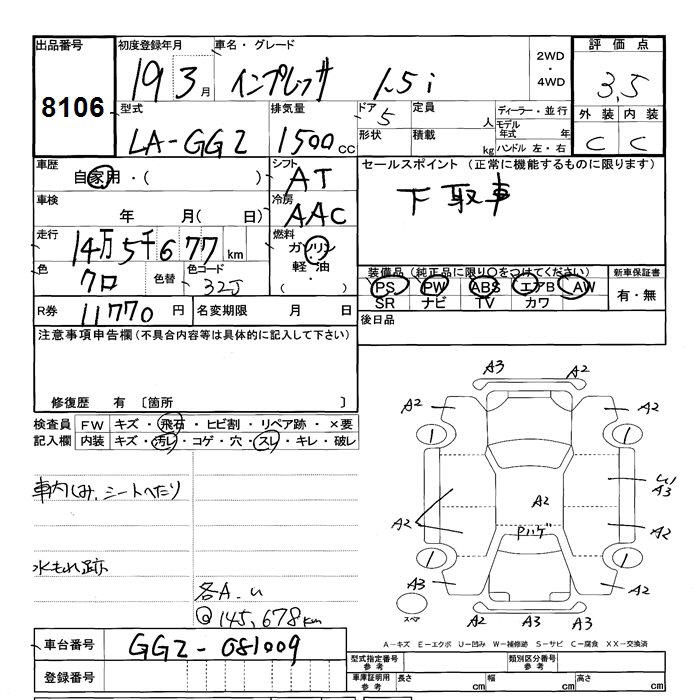 出品番号 初度登録年月 車名・グレード 評価点
8106 19 3月 インプレッサ 1.5i 2WD・4WD 3.5
型式 排気量 ドア 定員 ディーラー・並行 外装 内装
LA-GG2 1500cc 5 人 モデル年式 年 C C
形状 積載 kg ハンドル 左・右
車歴 自家用・( ) シフト AT セールスポイント (正常に機能するものに限ります)
車検 年 月( 日) 冷房 AAC 下取車
走行 14万5千677km 燃料 ガソリン・軽油・( )
色 クロ 色替 色コード 32J
装備品 (純正品に限り○をつけてください) 新車保証書
PS PW ABS エアB AW 有・無
SR ナビ TV カワ
R券 11770円 名変期限 月 日 後日品
注意事項申告欄(不具合内容等は具体的に記入して下さい)
修復歴 有 〔箇所 〕
検査員記入欄 FW キズ・飛石・ヒビ割・リペア跡・×要
内装 キズ・汚レ・コゲ・穴・スレ・キレ・破レ
車内しみ、シートへたり
水もれ跡
各A.U
@145,678km
A3 A2
A2 A2
1 1
U
A3
A2
A2 Pハゲ A2
1 1
A3 A2
スペア A2 A3 A3
A-キズ E-エクボ U-凹み W-補修跡 S-サビ C-腐食 XX-交換済
車台番号 GG2-081009
登録番号
型式指定番号 参考 類別区分番号 参考
車庫証明用 参考 長さ cm 幅 cm 高さ cm